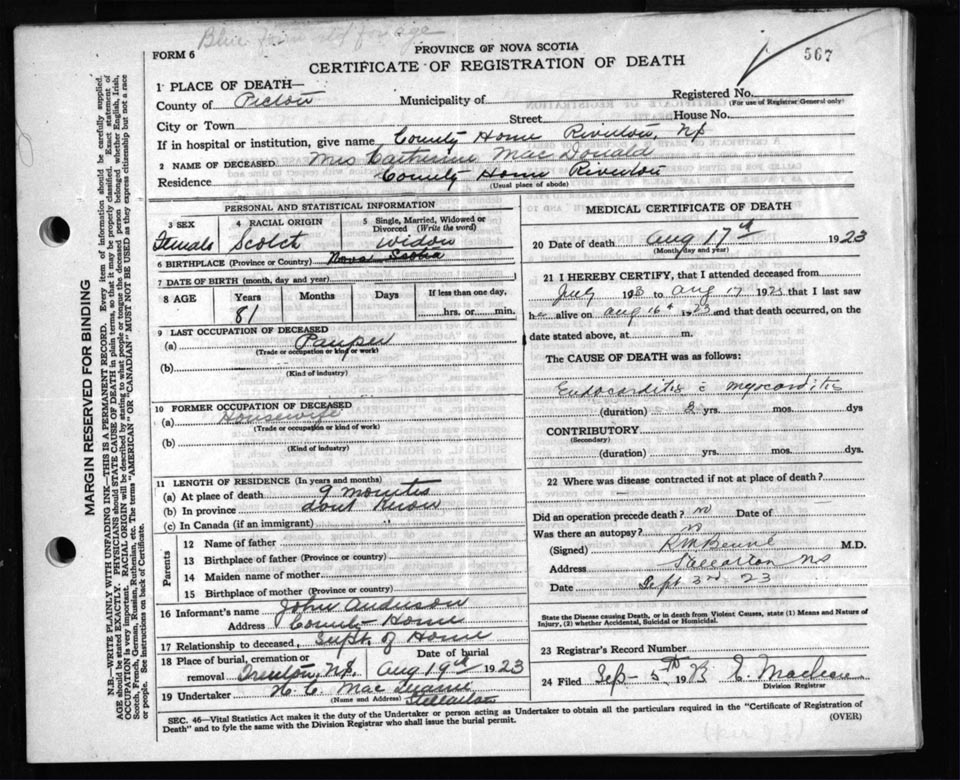 FORM 6
PROVINCE OF NOVA SCOTIA
CERTIFICATE OF REGISTRATION OF DEATH
567
1 PLACE OF DEATH—
Registered No.
(For use of Registrar General only)
County of Pictou Municipality of
City or Town Street House No.
If in hospital or institution, give name County Home Riverton, NS
2 NAME OF DECEASED Mrs Catherine MacDonald
Residence County Home Riverton
(Usual place of abode)
PERSONAL AND STATISTICAL INFORMATION
3 SEX 4 RACIAL ORIGIN 5 Single, Married, Widowed or Divorced (Write the word)
Female Scotch widow
6 BIRTHPLACE (Province or Country) Nova Scotia
7 DATE OF BIRTH (month, day and year)
8 AGE Years Months Days If less than one day,
81 hrs. or min.
9 LAST OCCUPATION OF DECEASED
(a) Pauper
(Trade or occupation or kind of work)
(b)
(Kind of industry)
10 FORMER OCCUPATION OF DECEASED
(a) Housewife
(Trade or occupation or kind of work)
(b)
(Kind of industry)
11 LENGTH OF RESIDENCE (In years and months)
(a) At place of death 9 months
(b) In province dont know
(c) In Canada (if an immigrant)
Parents
12 Name of father
13 Birthplace of father (Province or country)
14 Maiden name of mother
15 Birthplace of mother (Province or country)
16 Informant's name John Anderson
Address County Home
17 Relationship to deceased, Supt. of Home
18 Place of burial, cremation or removal Trenton, NS. Date of burial Aug 19th 1923
19 Undertaker H. C. Mac
(Name and Address) Stellarton
MEDICAL CERTIFICATE OF DEATH
20 Date of death Aug 17th 1923
(Month, day and year)
21 I HEREBY CERTIFY, that I attended deceased from
July 1923 to Aug 17 1923 that I last saw
h alive on Aug 16th 1923 and that death occurred, on the
date stated above, at m.
The CAUSE OF DEATH was as follows:
Endocarditis c myocarditis
(duration) yrs. mos. dys
CONTRIBUTORY
(Secondary)
(duration) yrs. mos. dys.
22 Where was disease contracted if not at place of death?
Did an operation precede death? no Date of
Was there an autopsy? n
(Signed) M.D.
Address Stellarton NS
Date Sept 3rd 23
State the Disease causing Death, or in death from Violent Causes, state (1) Means and Nature of Injury, (2) whether Accidental, Suicidal or Homicidal.
23 Registrar's Record Number
24 Filed Sep- 5th 19
Division Registrar
SEC. 46—Vital Statistics Act makes it the duty of the Undertaker or person acting as Undertaker to obtain all the particulars required in the "Certificate of Registration of
Death" and to fyle the same with the Division Registrar who shall issue the burial permit.
(OVER)
MARGIN RESERVED FOR BINDING
N.B.—WRITE PLAINLY WITH UNFADING INK—THIS IS A PERMANENT RECORD. Every item of information should be carefully supplied.
AGE should be stated EXACTLY. PHYSICIANS should STATE CAUSE OF DEATH in plain terms, so that it may be properly classified. Exact statement of
OCCUPATION is very important. RACIAL ORIGIN will be described by stating to what people or tongue the deceased person belonged whether English, Irish,
Scotch, French, German, Russian, Ruthenian, etc. The terms "AMERICAN" OR "CANADIAN" MUST NOT BE USED as they express citizenship but not a race
or people. See instructions on back of Certificate.